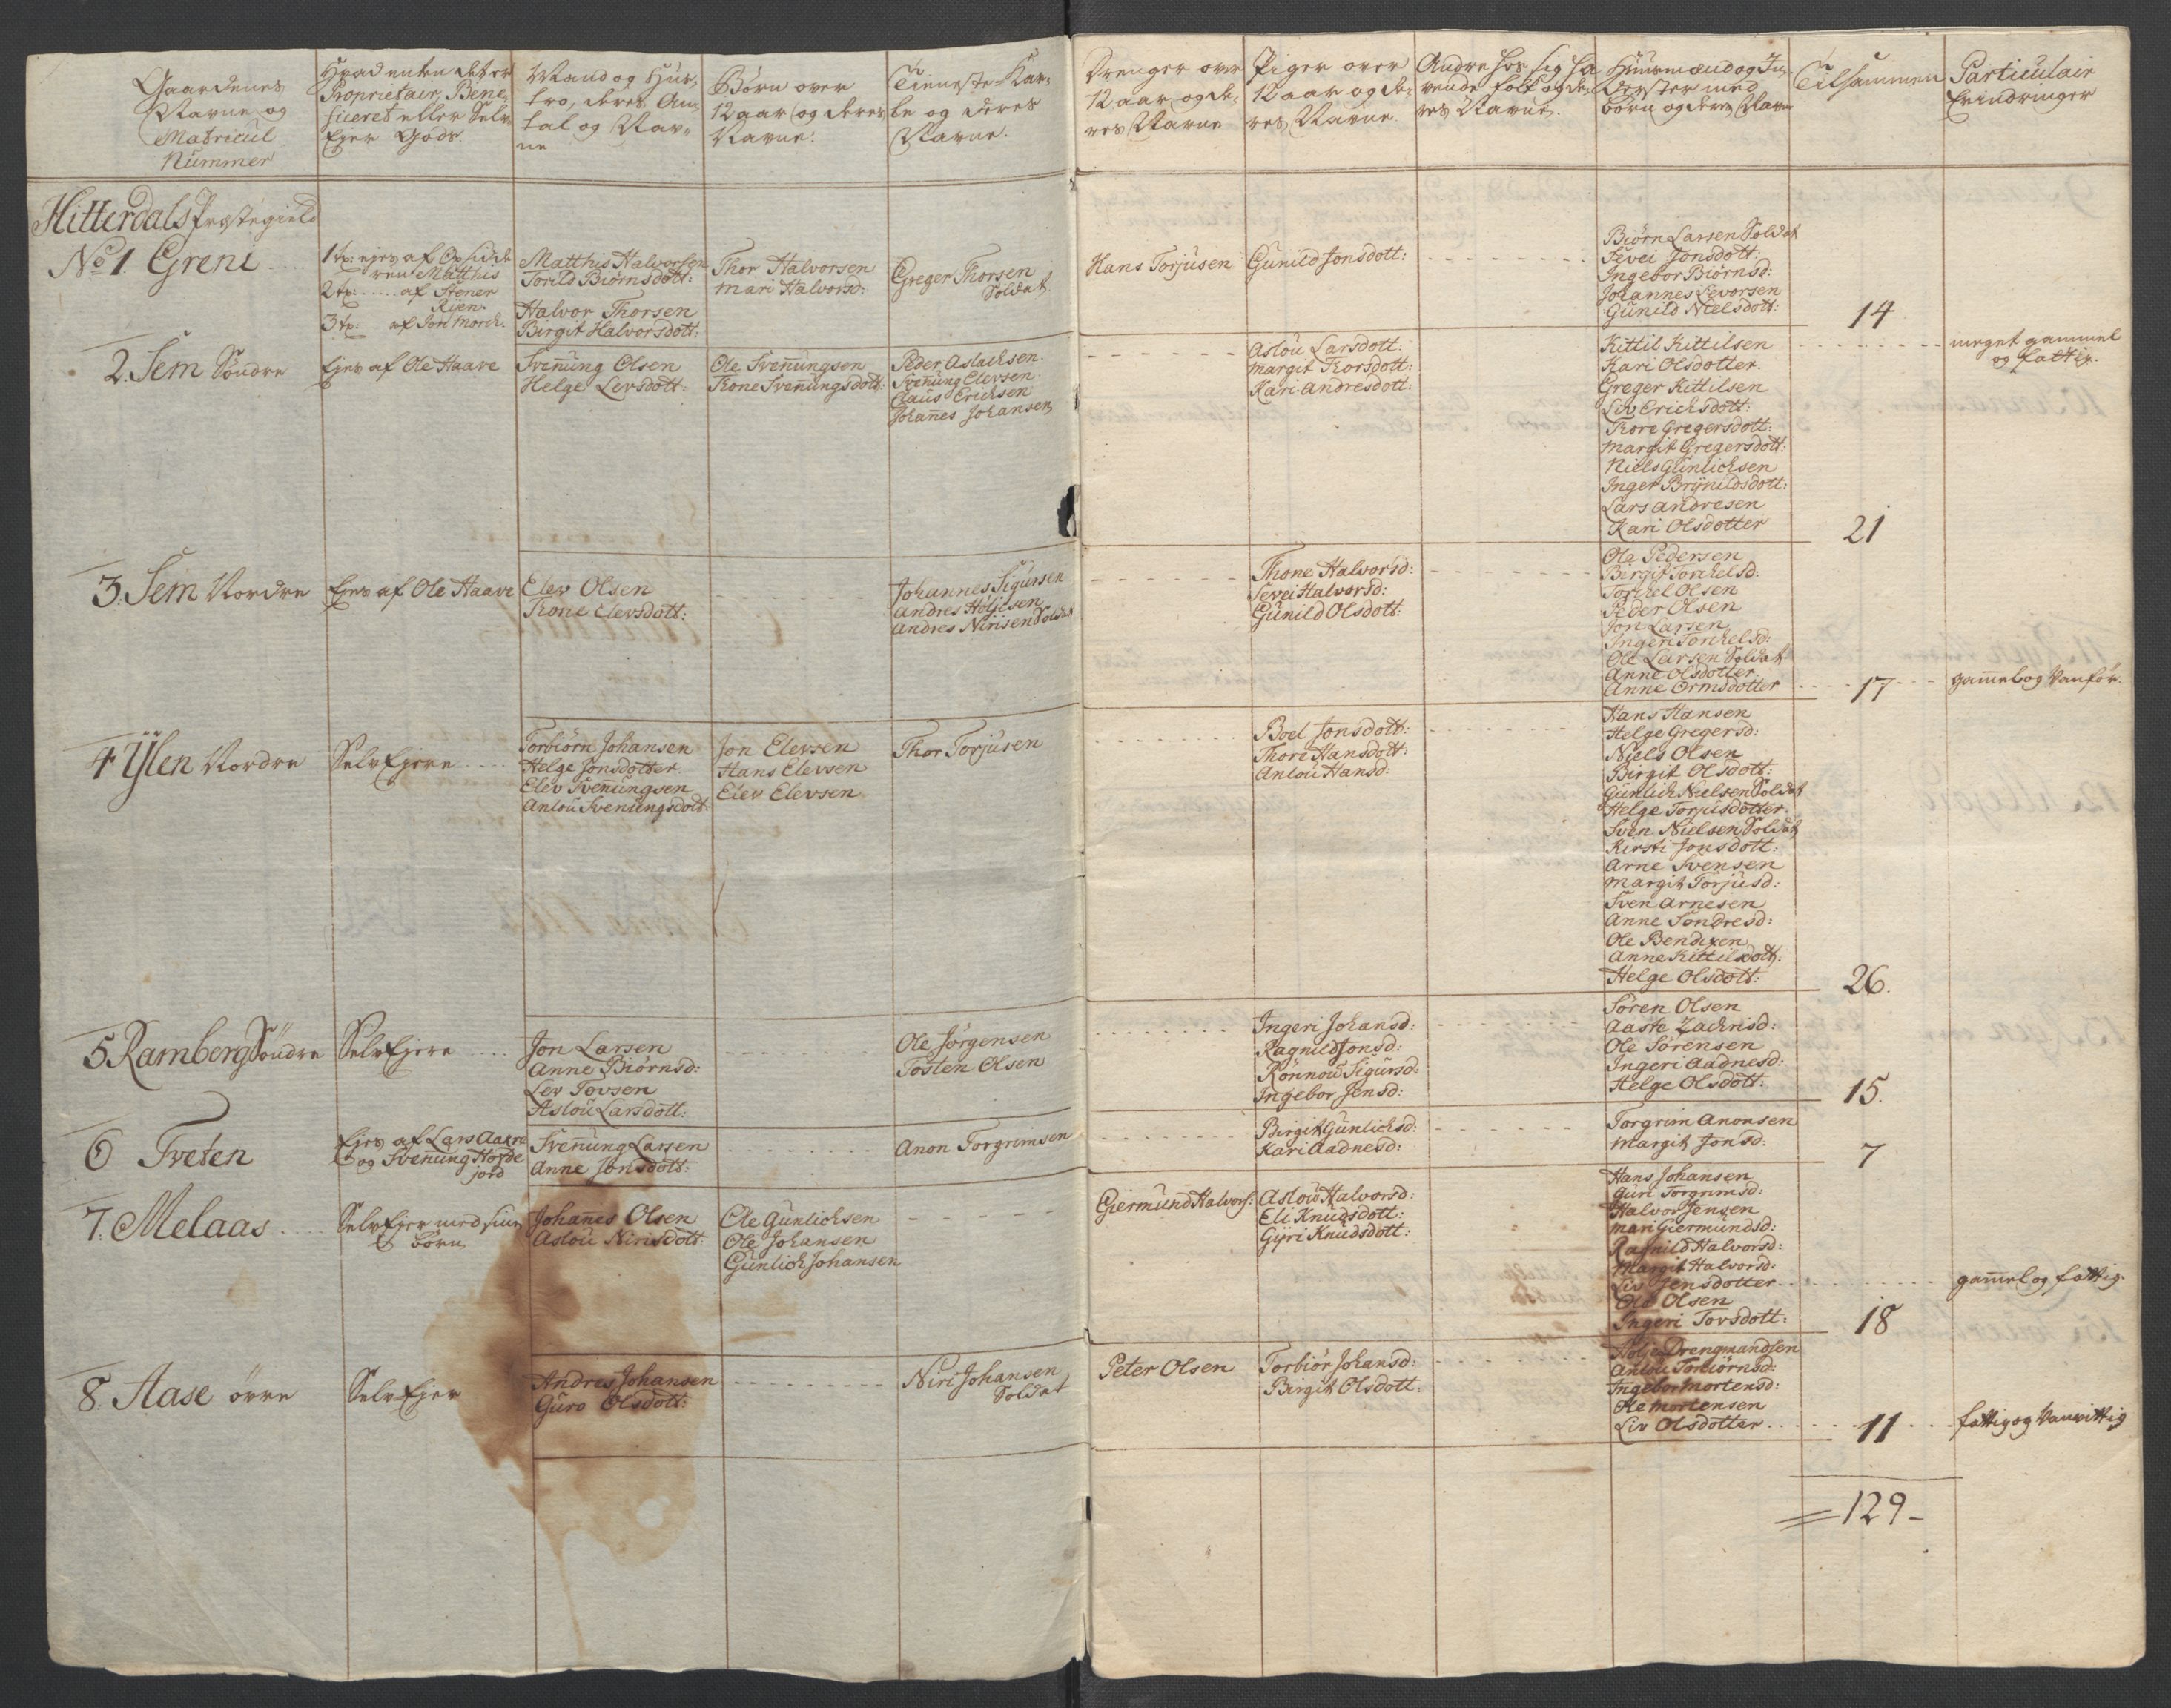 Gaardenes
Navne og
Matricul
Nummer
Hvad enten det er
Proprietair, Bene-
ficeret eller Selv
Ejer Gods.
Mand og Hus-
tro, deres An-
tal og Nav-
ne
Børn over
12 aar og deres
Navne.
Tieneste-Kar-
le og deres
Navne.
Drenger over
12 aar og de-
res Navne
Piger over
12 aar og de-
res Navne.
Andre hos sig ha
vende folk og de-
res Navne.
Huusmænd og In-
derster med
børn og deres Navne
Tilsammen
Particulair
Erindringer
Hitterdals Præstegield
No 1 Greni
1 tp: ejes af Opsidde
ren Matthis
2 tp: af Stener
Rijen.
3 tp: af Jon Morch.
Matthis Halvorsen
Torild Biørnsdott:
Halvor Thorsen
Birgit Halvorsdott:
Thor Halvorsen
Mari Halvorsd:
Greger Thorsen
Soldat
Hans Torjusen
Gunild Jonsdott:
Biørn Larsen Soldat
Sevei Jonsdott:
Ingebor Biørnsd:
Johannes Levorsen
Gunild Nielsdott:
14
2. Sem Søndre
Ejes af Ole Haave
Svenung Olsen
Helge Levsdott:
Ole Svenungsen
Thone Svenungsdott:
Peder Aslachsen.
Svenung Elevsen.
Claus Erichsen
Johannes Johansen
Aslou Larsdott:
Margit Thorsdott:
Kari Andresdott:
Kittil Kittilsen
Kari Olsdotter.
Greger Kittilsen
Liv Erichsdott:
Thore Gregersdott:
Margit Gregersdott:
Niels Gunlichsen
Inger Brÿnildsdott:
Lars Andresen
Kari Olsdotter
21
meget gammel
og fattig.
3. Sem Nordre
Ejes af Ole Haave
Elev Olsen
Thone Elevsdott:
Johannes Sigursen
Andres Høljesen
Andres Nirisen Soldat
Thone Halvorsd:
Sevei Halvorsd:
Gunild Olsdott:
Ole Pedersen
Bergit Torchelsd:
Torchel Olsen
Peder Olsen
Jon Larsen
Ingeri Torchelsd:
Ole Larsen Soldat
Anne Olsdotter
Anne Ormsdotter
17
gammel og Vanfør.
4 Ÿlen Nordre
Selv Ejere
Torbiørn Johansen
Helge Jonsdotter
Elev Svenungsen
Anlou Svenungsdott:
Jon Elevsen
Hans Elevsen
Elev Elevsen
Thor Torjusen
Boel Jonsdott:
Thore Hansdott:
Anlou Hansd:
Hans Hansen
Helge Gregersd:
Niels Olsen
Birgit Olsdott:
Gunlich Nielsen Soldat
Helge Torjusdotter.
Sven Nielsen Soldat
Kirsti Jonsdott:
Arne Svensen
Margit Torjusd:
Sven Arnesen
Anne Sondresd:
Ole Bendixen
Anne Kittilsdott.
Helge Olsdott:
26.
5. Ramberg Søndre
Selv Ejere
Jon Larsen
Anne Biørnsd:
Lev Tovsen
Aslou Larsdott:
Ole Jørgensen
Tosten Olsen
Ingeri Johansd:
Ragnild Jonsd:
Rønnou Sigursd:
Ingebor Jensd:
Søren Olsen
Aaste Zachrisd:
Ole Sørensen
Ingeri Aadnesd:
Helge Olsdott:
15.
6 Tveten
Ejes af Lars Aakre
og Svenung Horde
jord
Svenung Larsen
Anne Jonsdott:
Anon Torgrimsen
Birgit Gunlichsd:
Kari Aadnesd:
Torgrim Anonsen
Margit Jonsd:
7
7. Melaas
Selv Ejer med sine
børn
Johannes Olsen
Aslou Nirisdott:
Ole Gunlichsen
Ole Johansen
Gunlich Johansen
Giermund Halvors:
Aslou Halvorsd:
Eli Knudsdott:
Gÿri Knudsdott:
Hans Johansen
Guri Torgrimsd:
Halvor Jensen
Mari Giermundsd:
Ragnild Halvorsd:
Margit Halvorsd:
Liv Jensdotter
Ole Olsen
Ingeri Torsdott:
18
gammel og fattig.
8. Aase øvre
Selv Ejer
Andres Johansen
Guro Olsdott:
Niri Johansen
Soldat
Peter Olsen
Torbiør Johansd:
Birgit Olsdott.
Nolje Drengmandsen
Anlou Torbiørnsd:
Ingebor Mortensd:
Ole Mortensen
Liv Olsdotter
11
fattig og Vanvittig
= 129 -